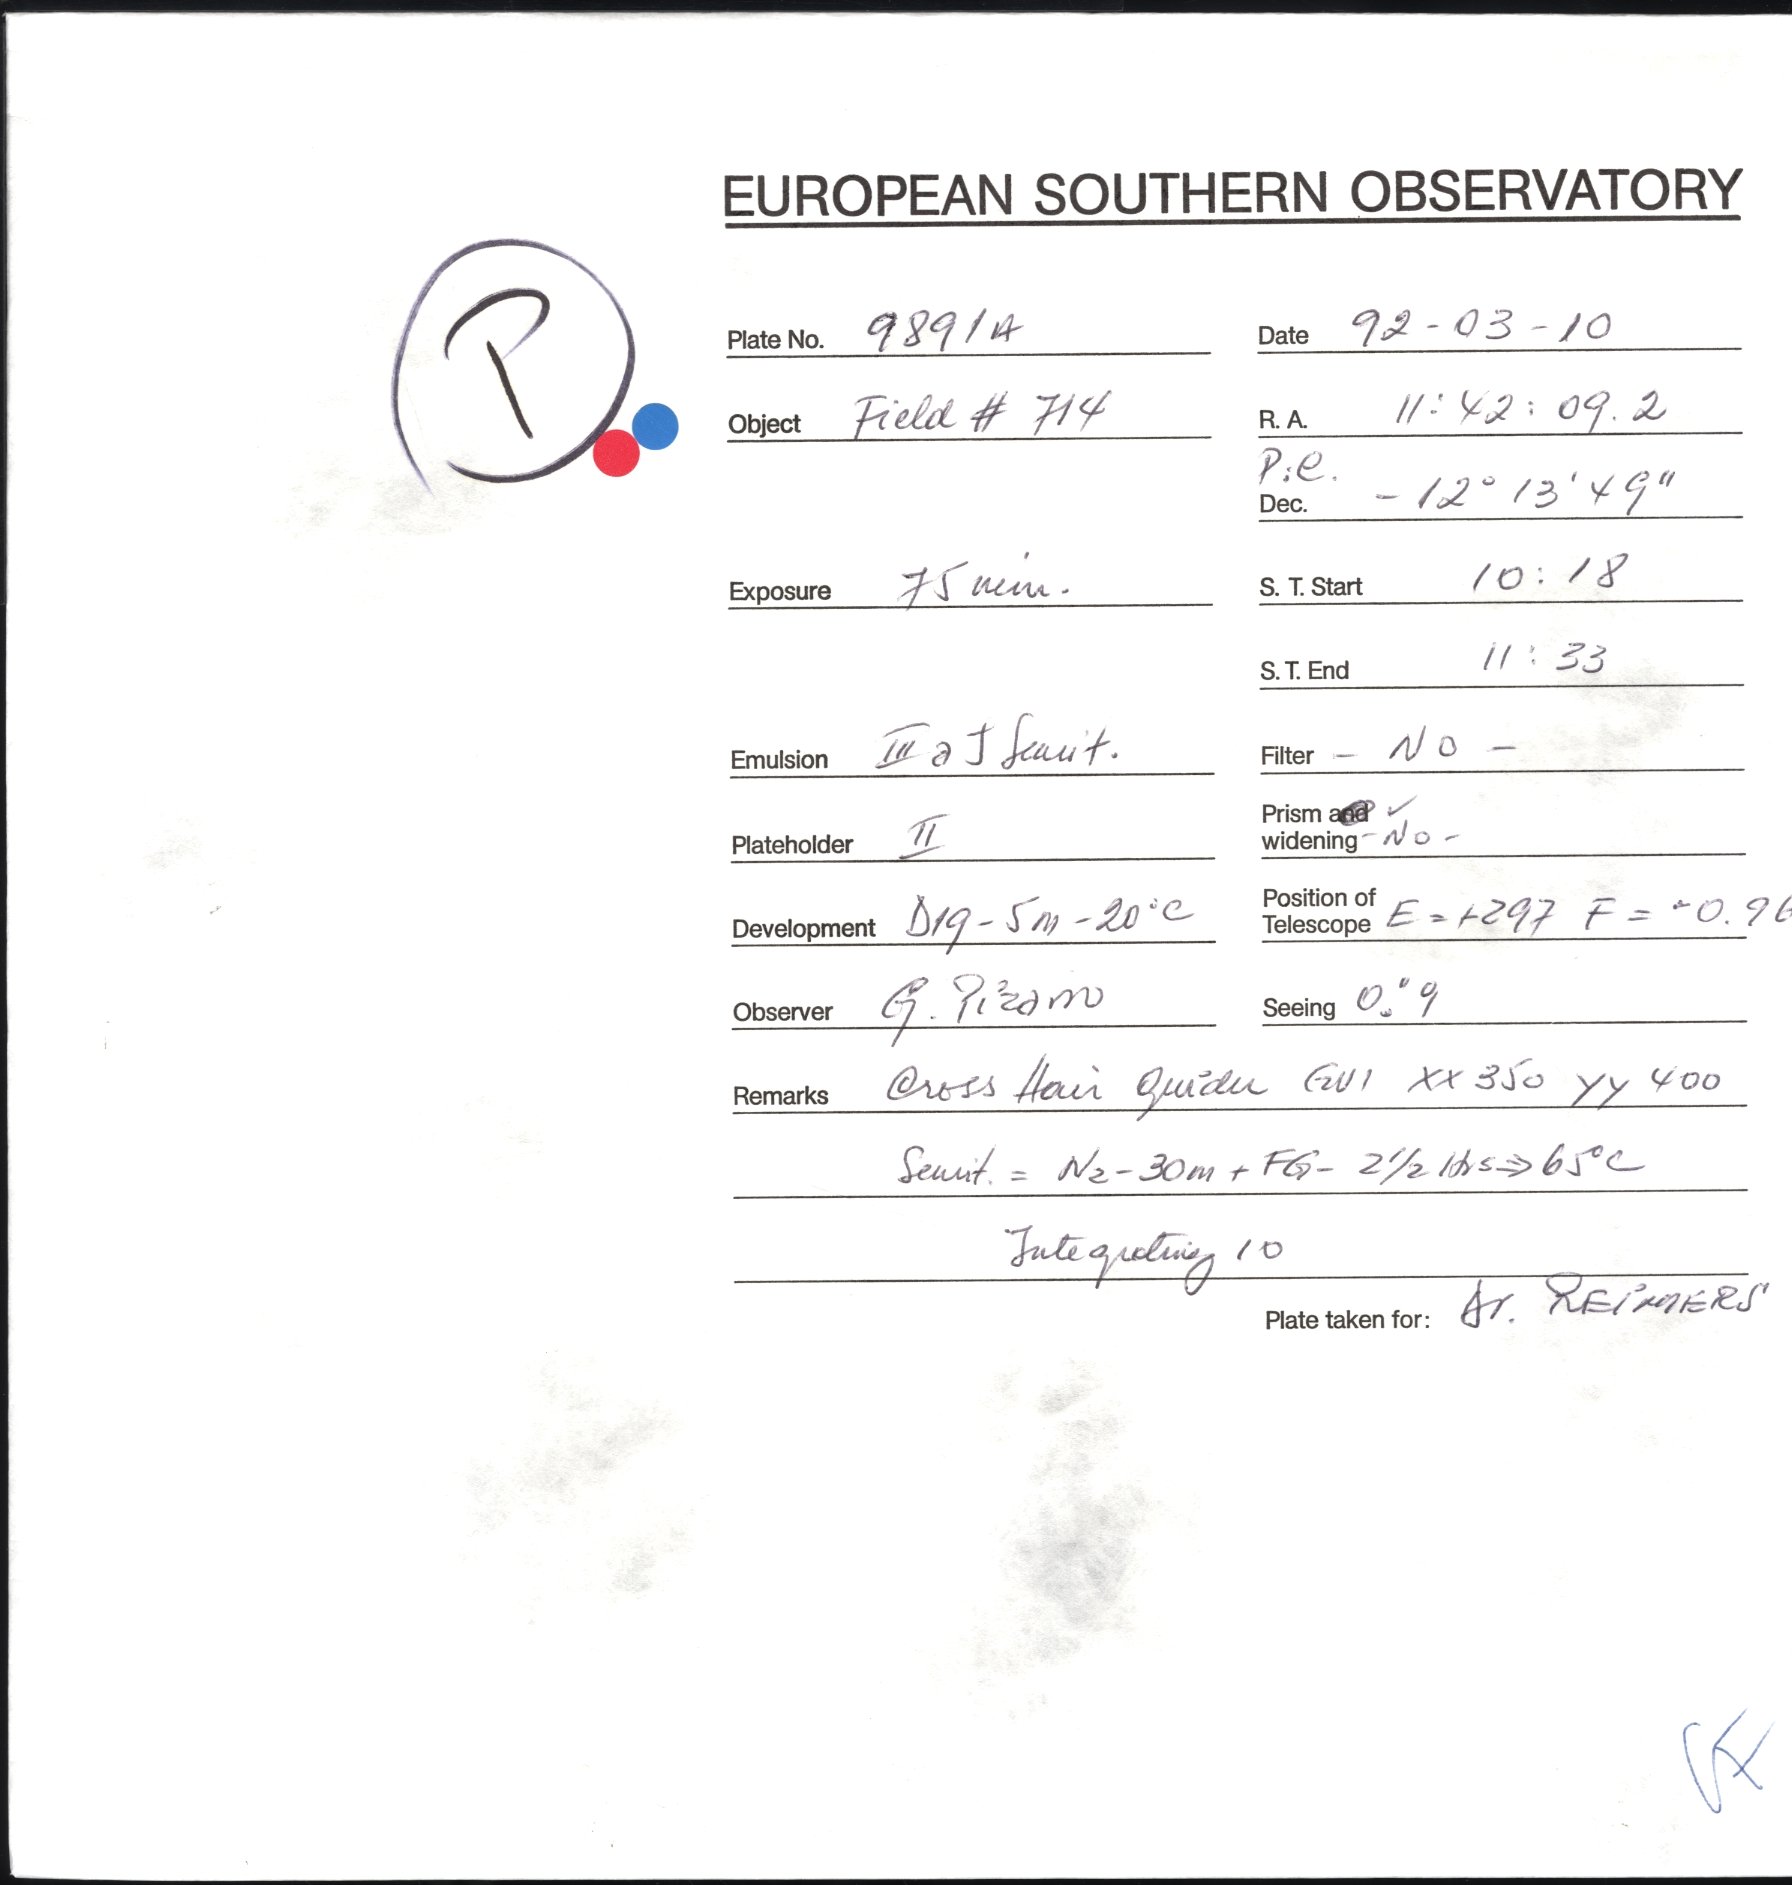 EUROPEAN SOUTHERN OBSERVATORY
P
Plate No. 9891A Date 92-03-10
Object Field # 714 R. A. 11:42:09.2
P.e.
Dec. -12° 13' 49"
Exposure 75 min. S. T. Start 10:18
S. T. End 11:33
Emulsion III a J Sensit. Filter - NO -
Plateholder II Prism and ✓
widening - No -
Development D19-5m-20°C Position of
Telescope E=+297 F=
Observer G. Pizarro Seeing 0."9
Remarks Cross Hair Guider GU1 XX 350 YY 400
Sensit. = N2-30m + FG- 2 1/2 Hrs => 65°C
Integrating 10
Plate taken for: Dr. REIMERS